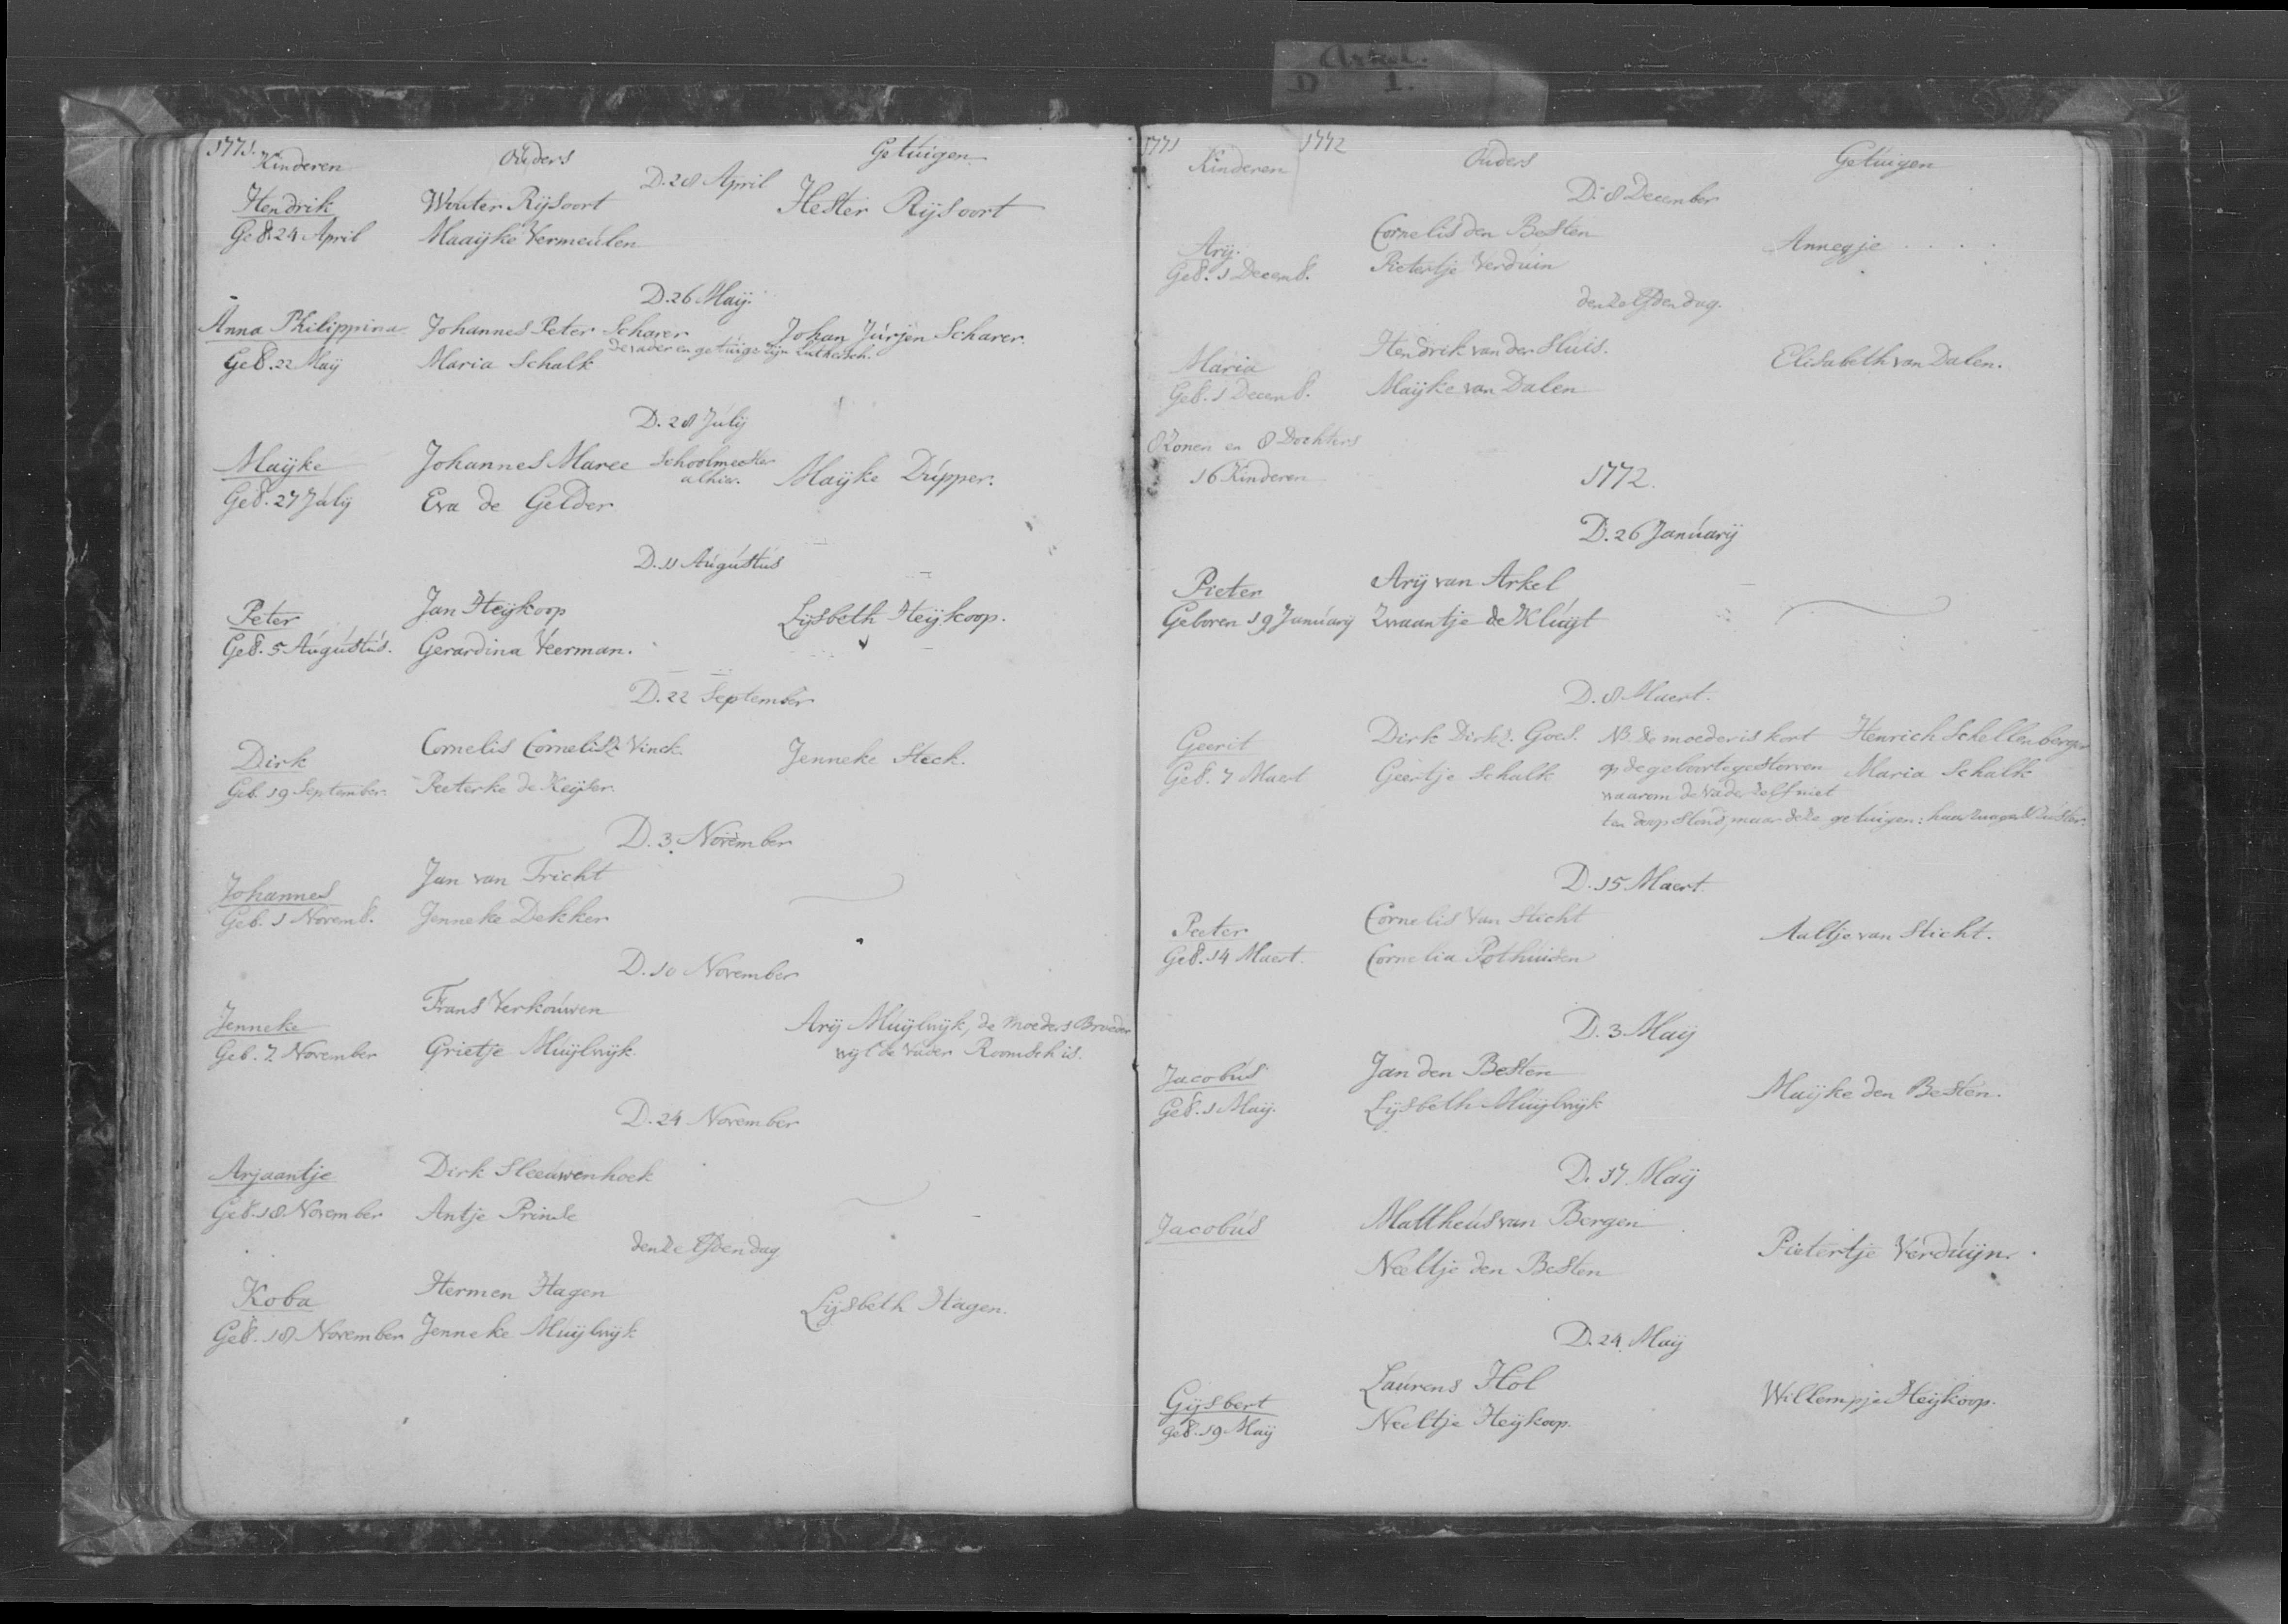 Arkel.
D 1.
1771.
Kinderen Ouders Getuigen
D. 28 April
Hendrik Wouter Rijsoort Hester Rijsoort
Geb. 24 April Maaijke Vermeulen
D. 26 Maij.
Anna Philippina Johannes Peter Scharer Johan Jurjen Scharer.
de vader en getuige zijn Luthersch.
Geb. 22 Maij Maria Schalk
D. 28 Julij
Maijke Johannes Maree Schoolmeester Maijke Drupper.
alhier.
Geb. 27 Julij Eva de Gelder
D. 11 Augustus
Peter Jan Heijkoop Lijsbeth Heijkoop.
Geb. 5 Augustus. Gerardina Veerman.
D. 22 September
Dirk Cornelis Cornelisz Vinck Jenneke Steck.
Geb. 19 September. Peeterke de Keijser.
D. 3. November
Johannes Jan van Tricht
Geb. 1 Novemb. Jenneke Dekker
D. 10 November
Jenneke Frans Verkouwen Arij Muijlwijk, de moeders Broeder
Geb. 7. November Grietje Muijlwijk. wijl de vader Roomsch is.
D. 24 November
Arjaantje Dirk Sleeuwenhoek
Geb. 18 November Antje Prinse
denzelfden dag
Koba Hermen Hagen Lijsbeth Hagen.
Geb. 18 November Jenneke Muijlwijk
1771 1772
Kinderen Ouders Getuigen
D. 8 December
Arij. Cornelis den Besten Annegje . . . .
Geb. 1 Decemb. Pietertje Verduin
denzelfden dag.
Maria Hendrik van der Sluis. Elisabeth van Dalen.
Geb. 1 Decemb. Maijke van Dalen
8 Zonen en 8 Dochters
16 Kinderen
1772.
D. 26 Januarij
Pieter Arij van Arkel
Geboren 19 Januarij Zwaantje de Kluijt
D. 8 Maert.
Geerit Dirk Dirkz. Goes. NB de moeder is kort Henrich Schellenberger
Geb. 7 Maert Geertje Schalk op de geboorte gestorven Maria Schalk
waarom de vader zelf niet
ten doop stond, maar deze getuigen: haar zwager & zuster.
D. 15 Maert.
Peeter Cornelis van Sticht Aaltje van Sticht.
Geb. 14 Maert. Cornelia Pothuisen
D. 3 Maij
Jacobus Jan den Besten Maijke den Besten.
Geb. 1 Maij. Lijsbeth Muijlwijk
D. 17 Maij
Jacobus Mattheus van Bergen Pietertje Verduijn.
Neeltje den Besten
D. 24 Maij
Gijsbert Laurens Hol Willempje Heijkoop.
Geb. 19 Maij Neeltje Heijkoop.